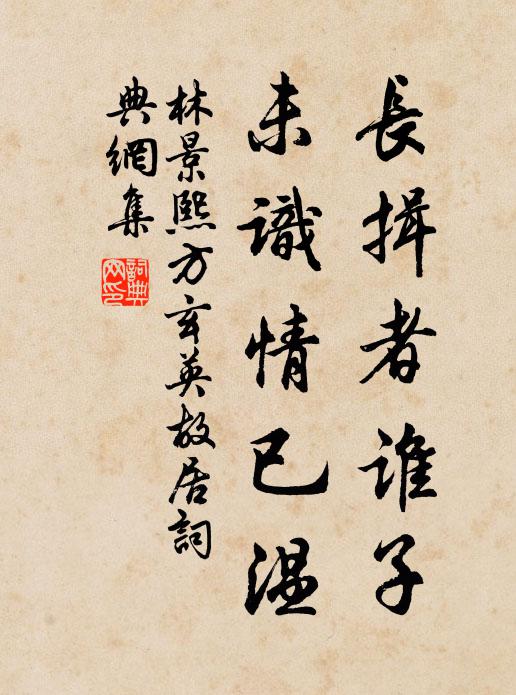 長揖者誰子
未識情已溫
林景熙方玄英故居詞
典網集
詞典
网印